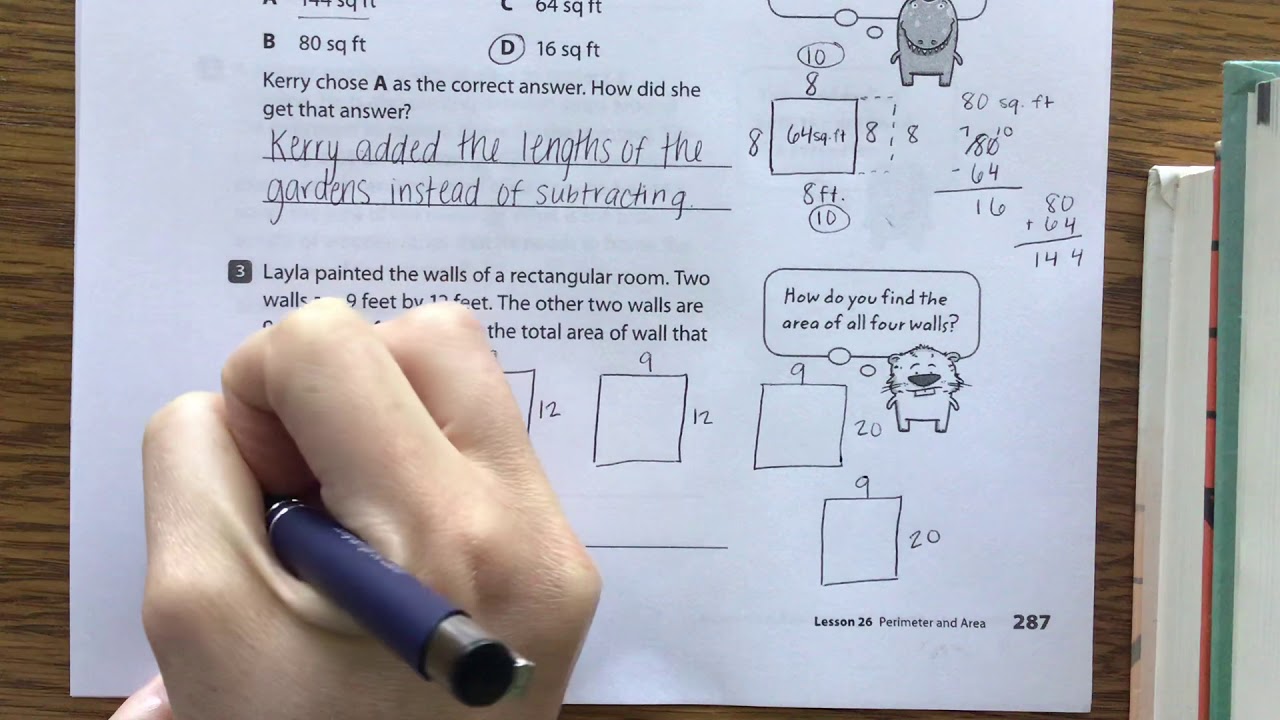 A 144 sq ft
C 64 sq ft
B 80 sq ft
D 16 sq ft
Kerry chose A as the correct answer. How did she
get that answer?
Kerry added the lengths of the
gardens instead of subtracting.
10
8
8 64sq.ft 8 8
8ft.
10
80 sq. ft
7 10
80
- 64
16
80
+ 64
144
3 Layla painted the walls of a rectangular room. Two
walls 9 feet by 12 feet. The other two walls are
the total area of wall that
How do you find the
area of all four walls?
12
9
12
9
20
9
20
Lesson 26 Perimeter and Area 287